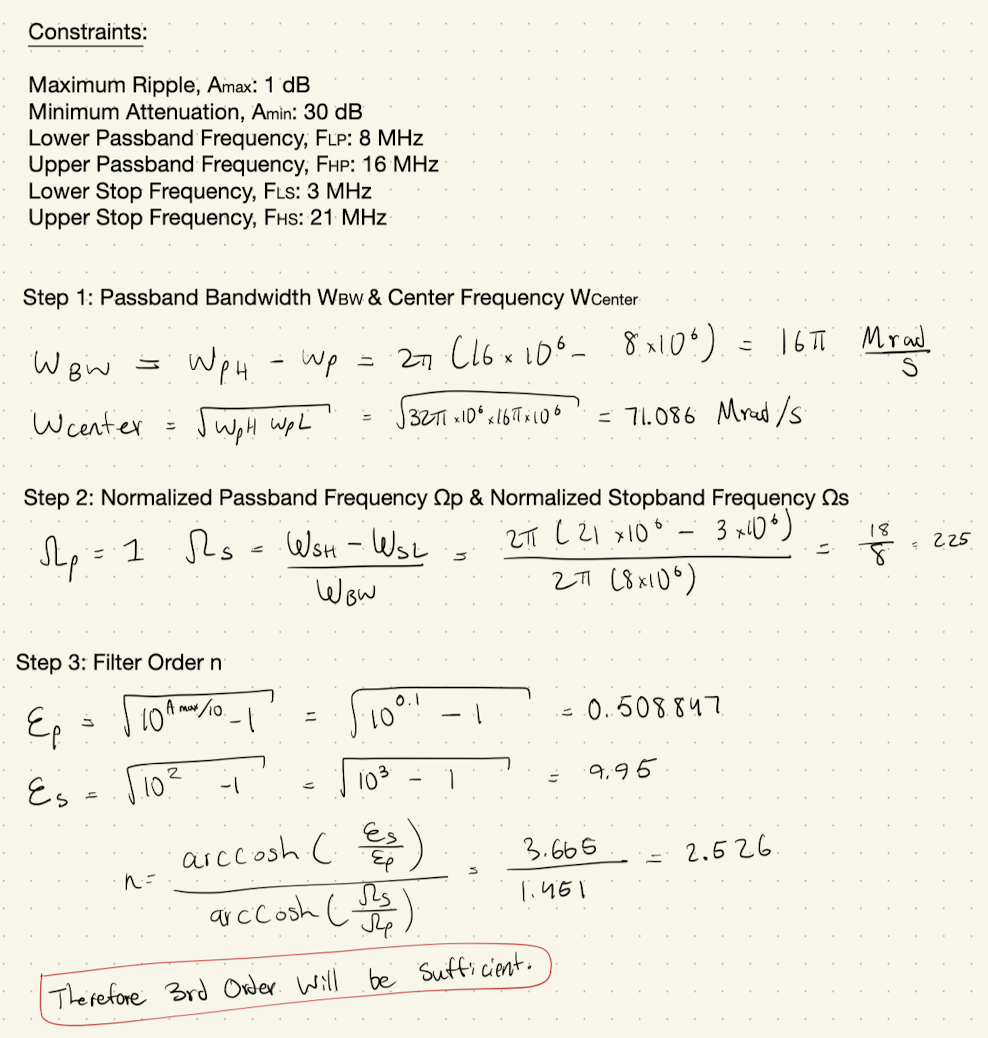 Constraints:
Maximum Ripple, Amax: 1 dB
Minimum Attenuation, Amin: 30 dB
Lower Passband Frequency, FLP: 8 MHz
Upper Passband Frequency, FHP: 16 MHz
Lower Stop Frequency, FLS: 3 MHz
Upper Stop Frequency, FHS: 21 MHz
Step 1: Passband Bandwidth WBW & Center Frequency WCenter
WBW = WPH - WP = 2π (16 × 10⁶ - 8×10⁶) = 16π Mrad/S
Wcenter = √(WpH WpL) = √(32π ×10⁶ ×16π×10⁶) = 71.086 Mrad/s
Step 2: Normalized Passband Frequency Ωp & Normalized Stopband Frequency Ωs
Ωp = 1 Ωs = (WSH - WSL)/WBW = 2π (21 ×10⁶ - 3 ×10⁶)/2π (8×10⁶) = 18/8 = 225
Step 3: Filter Order n
Ep = √(10^(Amax/10) - 1) = √(10^0.1 - 1) = 0.508847
Es = √(10² - 1) = √(10³ - 1) = 9.95
n = arccosh (Es/Ep) / arccosh (Ωs/Ωp) = 3.665/1.451 = 2.526
Therefore 3rd Order will be sufficient.